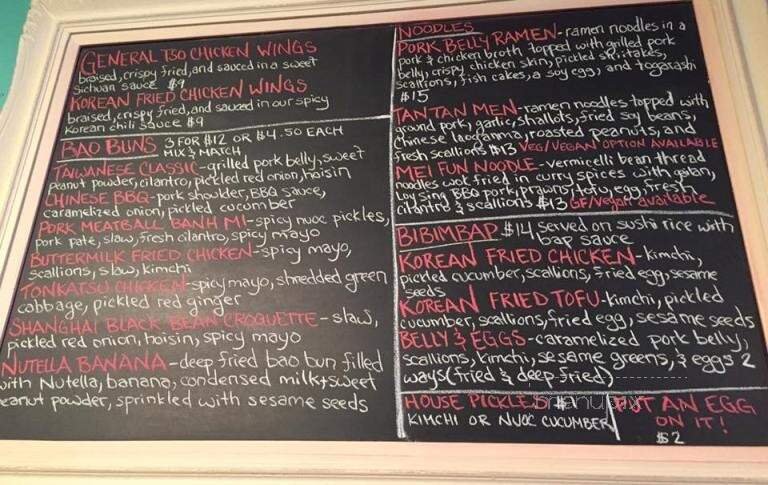 GENERAL TSO CHICKEN WINGS
braised, crispy fried, and sauced in a sweet
Sichuan sauce $9
KOREAN FRIED CHICKEN WINGS
braised, crispy fried, and sauced in our spicy
Korean chili sauce $9
BAO BUNS 3 FOR $12 OR $4.50 EACH
MIX & MATCH
TAIWANESE CLASSIC-grilled pork belly, sweet
peanut powder, cilantro, pickled red onion, hoisin
CHINESE BBG-pork shoulder, BBQ sauce,
caramelized onion, pickled cucumber
PORK MEATBALL BANH MI-spicy nuoc pickles,
pork pate, slaw, fresh cilantro, spicy mayo
BUTTERMILK FRIED CHICKEN-spicy mayo,
scallions, slaw, kimchi
TONKATSU CHICKEN-spicy mayo, shredded green
cabbage, pickled red ginger
SHANGHAI BLACK BEAN CROQUETTE-slaw,
pickled red onion, hoisin, spicy mayo
NUTELLA BANANA-deep fried bao bun filled
with Nutella, banana, condensed milk, sweet
peanut powder, sprinkled with sesame seeds
NOODLES
PORK BELLY RAMEN-ramen noodles in a
pork & chicken broth topped with grilled pork
belly, crispy chicken skin, pickled shiitakes,
scallions, fish cakes, a soy egg, and togarashi
$15
TAN TAN MEN-ramen noodles topped with
ground pork, garlic, shallots, fried soy beans,
Chinese laoganma, roasted peanuts, and
fresh scallions $13 VEG/VEGAN OPTION AVAILABLE
MEI FUN NOODLE-vermicelli bean thread
noodles wok fried in curry spices with
BBQ pork, prawns, tofu, egg, fresh
cilantro & scallions $13 GF/Vegan available
BIBIMBAP $14 served on sushi rice with
bap sauce
KOREAN FRIED CHICKEN-kimchi,
pickled cucumber, scallions, fried egg, sesame
seeds
KOREAN FRIED TOFU-kimchi, pickled
cucumber, scallions, fried egg, sesame seeds
BELLY & EGGS-caramelized pork belly,
scallions, kimchi, sesame greens, & eggs 2
ways (fried & deep fried)
HOUSE PICKLES
KIMCHI OR NUOC CUCUMBER
PUT AN EGG
ON IT!
$2